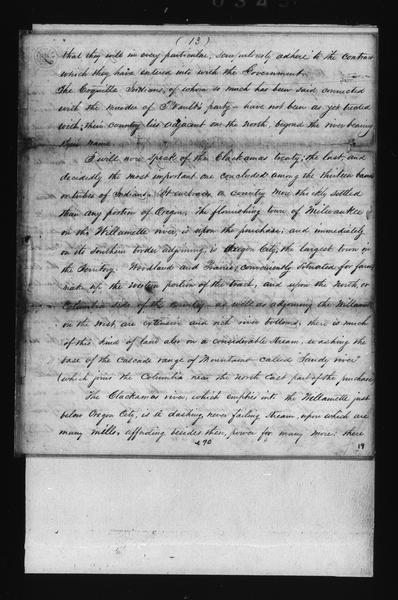 (13)
that they will in every particular, scrupulously adhere to the contract
which they have entered into with the Government.
The Coquille Indians, of whom so much has been said connected
with the murder of T'Vault's party – have not been as yet treated
with; their country lies adjacent on the North, beyond the river bearing
their name
I will now speak of the Clackamas treaty; the last, and
decidedly the most important one concluded among the thirteen bands
or tribes of Indians. It embraces a country more thickly settled
than any portion of Oregon. The flourishing town of Milwaukie
on the Willamette river, is upon the purchase; and immediately
on its Southern border adjoining, is Oregon City, the largest town in
the Territory. Woodland and Prairie, conveniently situated for farms
make up the western portion of the tract, and upon the North, or
Columbia side of the country, as well as adjoining the Willamette
on the West, are extensive and rich river bottoms; there is much
of this kind of land also on a considerable Stream, washing the
base of the Cascade range of Mountains called Sandy river
(which joins the Columbia near the North East part of the purchase
The Clackamas river, which empties into the Willamette just
below Oregon City, is a dashing, never failing Stream, upon which are
many mills, affording besides these, power for many more: there
470
19